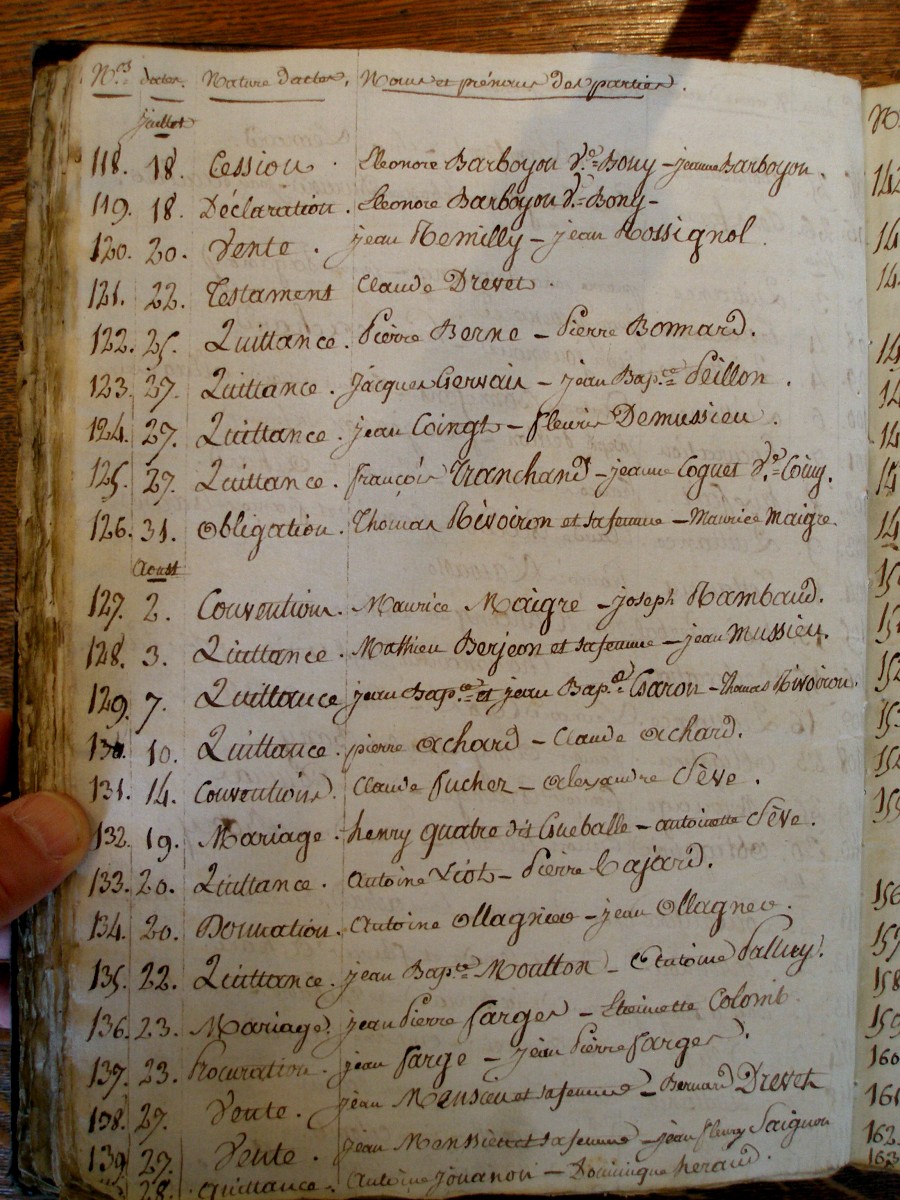 N.os dates. Nature d'actes. Noms et prénoms des parties.
juillet
118. 18. Cession. Eleonore Barboyon v.e Bony - jeanne Barboyon.
119. 18. Déclaration. Eleonore Barboyon v.e Bony -
120. 20. Vente. jean Remilly - jean Rossignol.
121. 22. Testament Claude Drevet.
122. 25. Quittance. Pierre Berne - Pierre Bonnard.
123. 27. Quittance. jacques Gervais - jean Bap.te Peillon.
124. 27. Quittance. jean Coingt - fleurie Demussieu.
125. 27. Quittance. françois Tranchand - jeanne Coguet v.e
126. 31. Obligation. Thomas Rivoiron et sa femme - Maurice Maigre.
Aoust
127. 2. Conventions. Maurice Maigre - joseph Rambaud.
128. 3. Quittance. Mathieu Berjeon et sa femme - jean Mussieu.
129. 7. Quittance jean Bap.te et jean Bap.te Caron - Thomas Rivoiron.
130. 10. Quittance. pierre Achard - Claude Achard.
131. 14. Conventions. Claude fucher - alexandre Sève.
132. 19. Mariage. henry quatre dit - antoinette Sève.
133. 20. Quittance. Antoine Viot - Pierre Bajard.
134. 20. Donnation. Antoine Ollagnier - jean Ollagnier.
135. 22. Quittance. jean Bap.te Moulton - Antoine
136. 23. Mariage. jean Pierre farges - Etiennette Colomb.
137. 23. Procuration. jean farge - jean Pierre farges.
138. 27. Vente. jean et sa femme - Bernard Drevet
139 27. Vente. jean et sa femme - jean fleury Saignon
28. Quittance. Antoine jouanon - Dominique heraud.
N.
142
14
14
14
14
14
15
152
153
154
155
156
157
158
159
160
161
162.
163